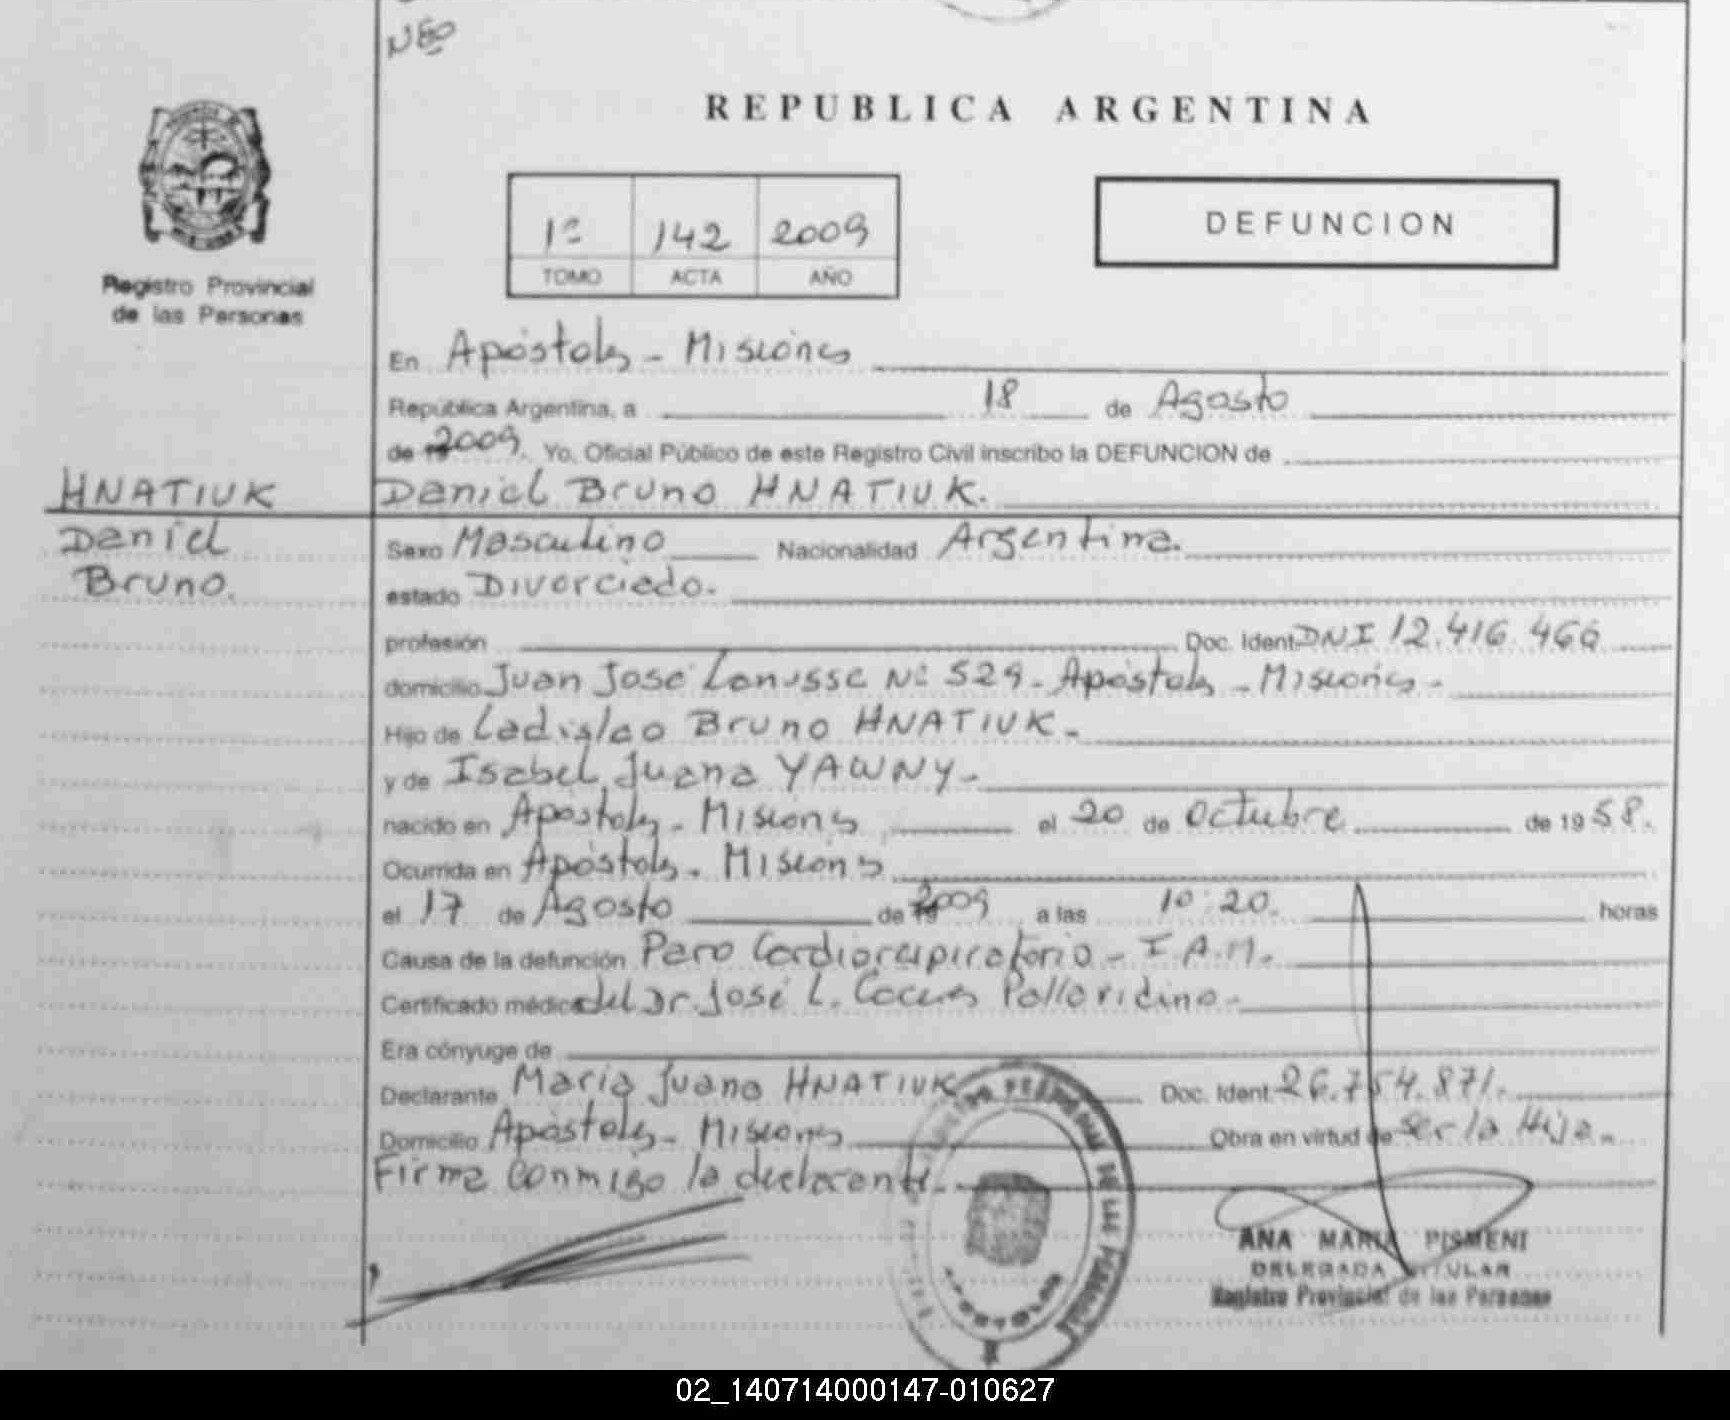 NEO
REPUBLICA ARGENTINA
1º 142 2009
TOMO ACTA AÑO
DEFUNCION
Registro Provincial
de las Personas
En Apóstoles - Misiones
República Argentina, a 18 de Agosto
de 2009. Yo, Oficial Público de este Registro Civil inscribo la DEFUNCION de
HNATIUK Daniel Bruno HNATIUK.
Daniel Sexo Masculino Nacionalidad Argentina.
Bruno. estado Divorciado.
profesión Doc. Ident. DNI 12.416.466
domicilio Juan José Lanusse Nº 529 - Apóstoles - Misiones -
Hijo de Ladislao Bruno HNATIUK -
y de Isabel Juana YAWNY -
nacido en Apóstoles - Misiones el 20 de Octubre de 1958.
Ocurrida en Apóstoles - Misiones
el 17 de Agosto de 2009 a las 10:20. horas
Causa de la defunción Paro Cardiorespiratorio - I.A.M.
Certificado médico del Dr. José L. Pallaridino -
Era cónyuge de
Declarante María Juana HNATIUK Doc. Ident. 26.754.871.
Domicilio Apóstoles - Misiones Obra en virtud de ser la Hija.
Firma conmigo la declarante.
ANA MARIA PISMENI
DELEGADA TITULAR
Registro Provincial de las Personas
APOSTOLES
02_140714000147-010627